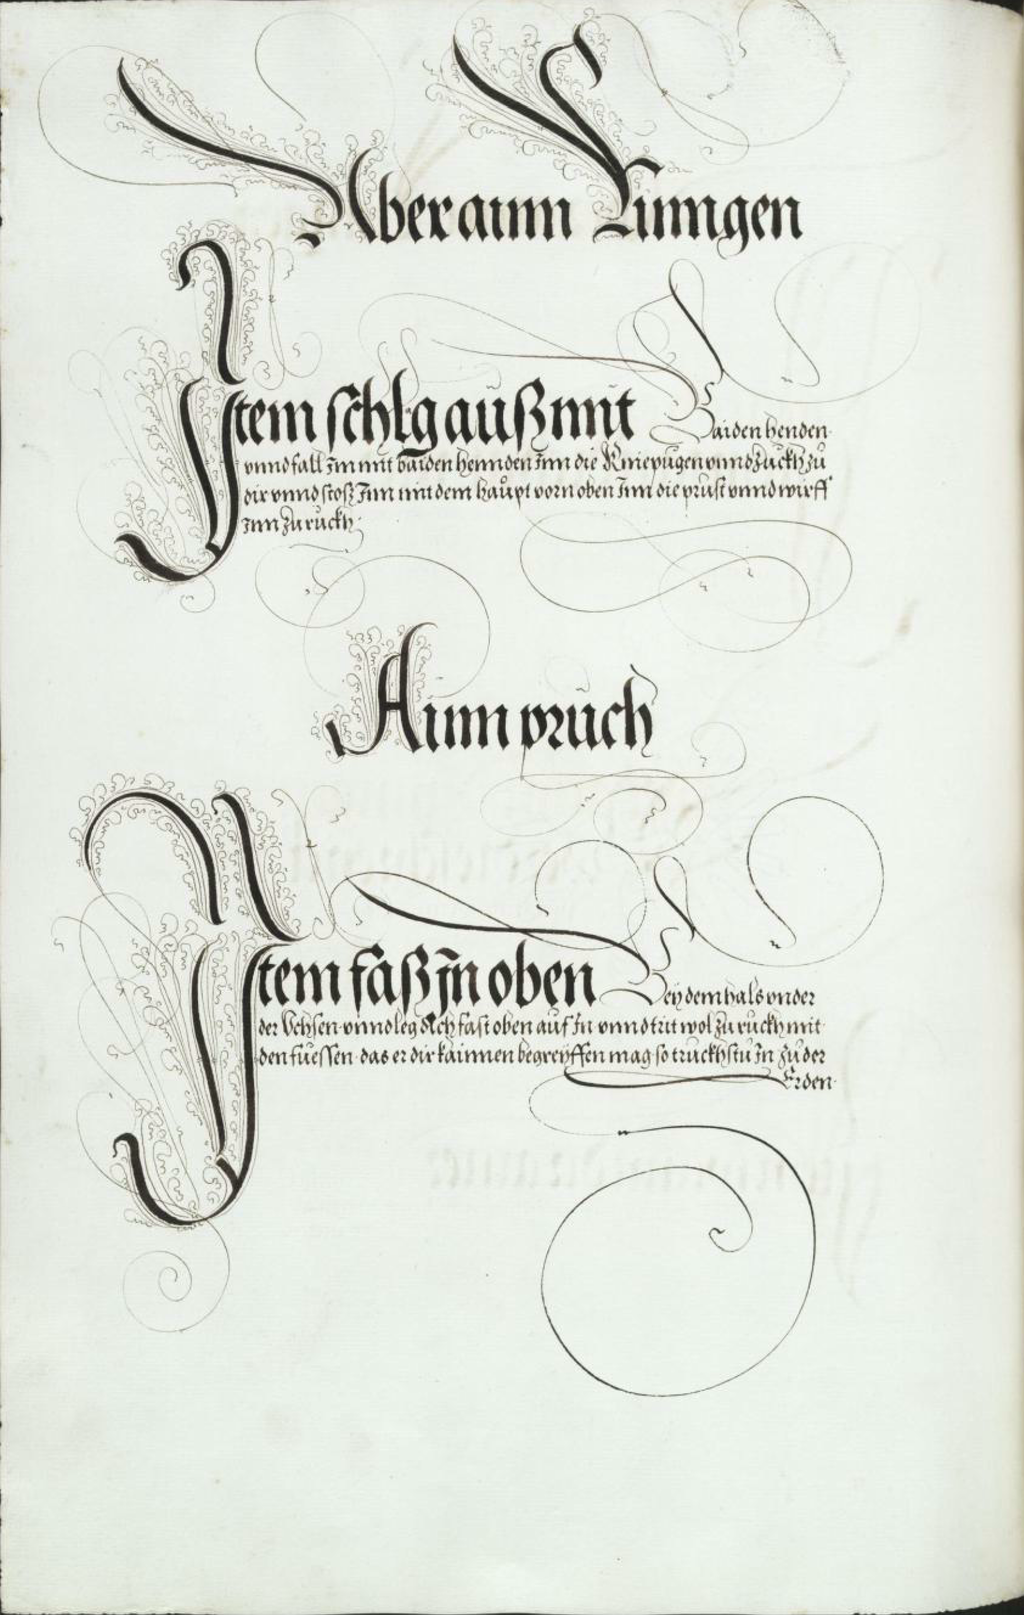 Aber ainn Ringen
Item schlg auß mit Baiden henden
vnnd fall Inn mit baiden hennden Inn die Kniepügen vnnd zückh zů
dir vnnd stoß Inn mit dem haůpt vorn oben Inn die prust vnnd wirff
Inn zu rückh
Ainn prüch
Item faß Jn oben Bey dem hals vnder
der Vchsen vnnd leg dich fast oben auf In vnnd trit wol zu rückh mit
den fuessen das er dir kainnen begreyffen mag so truckhstu In zu der
Erden